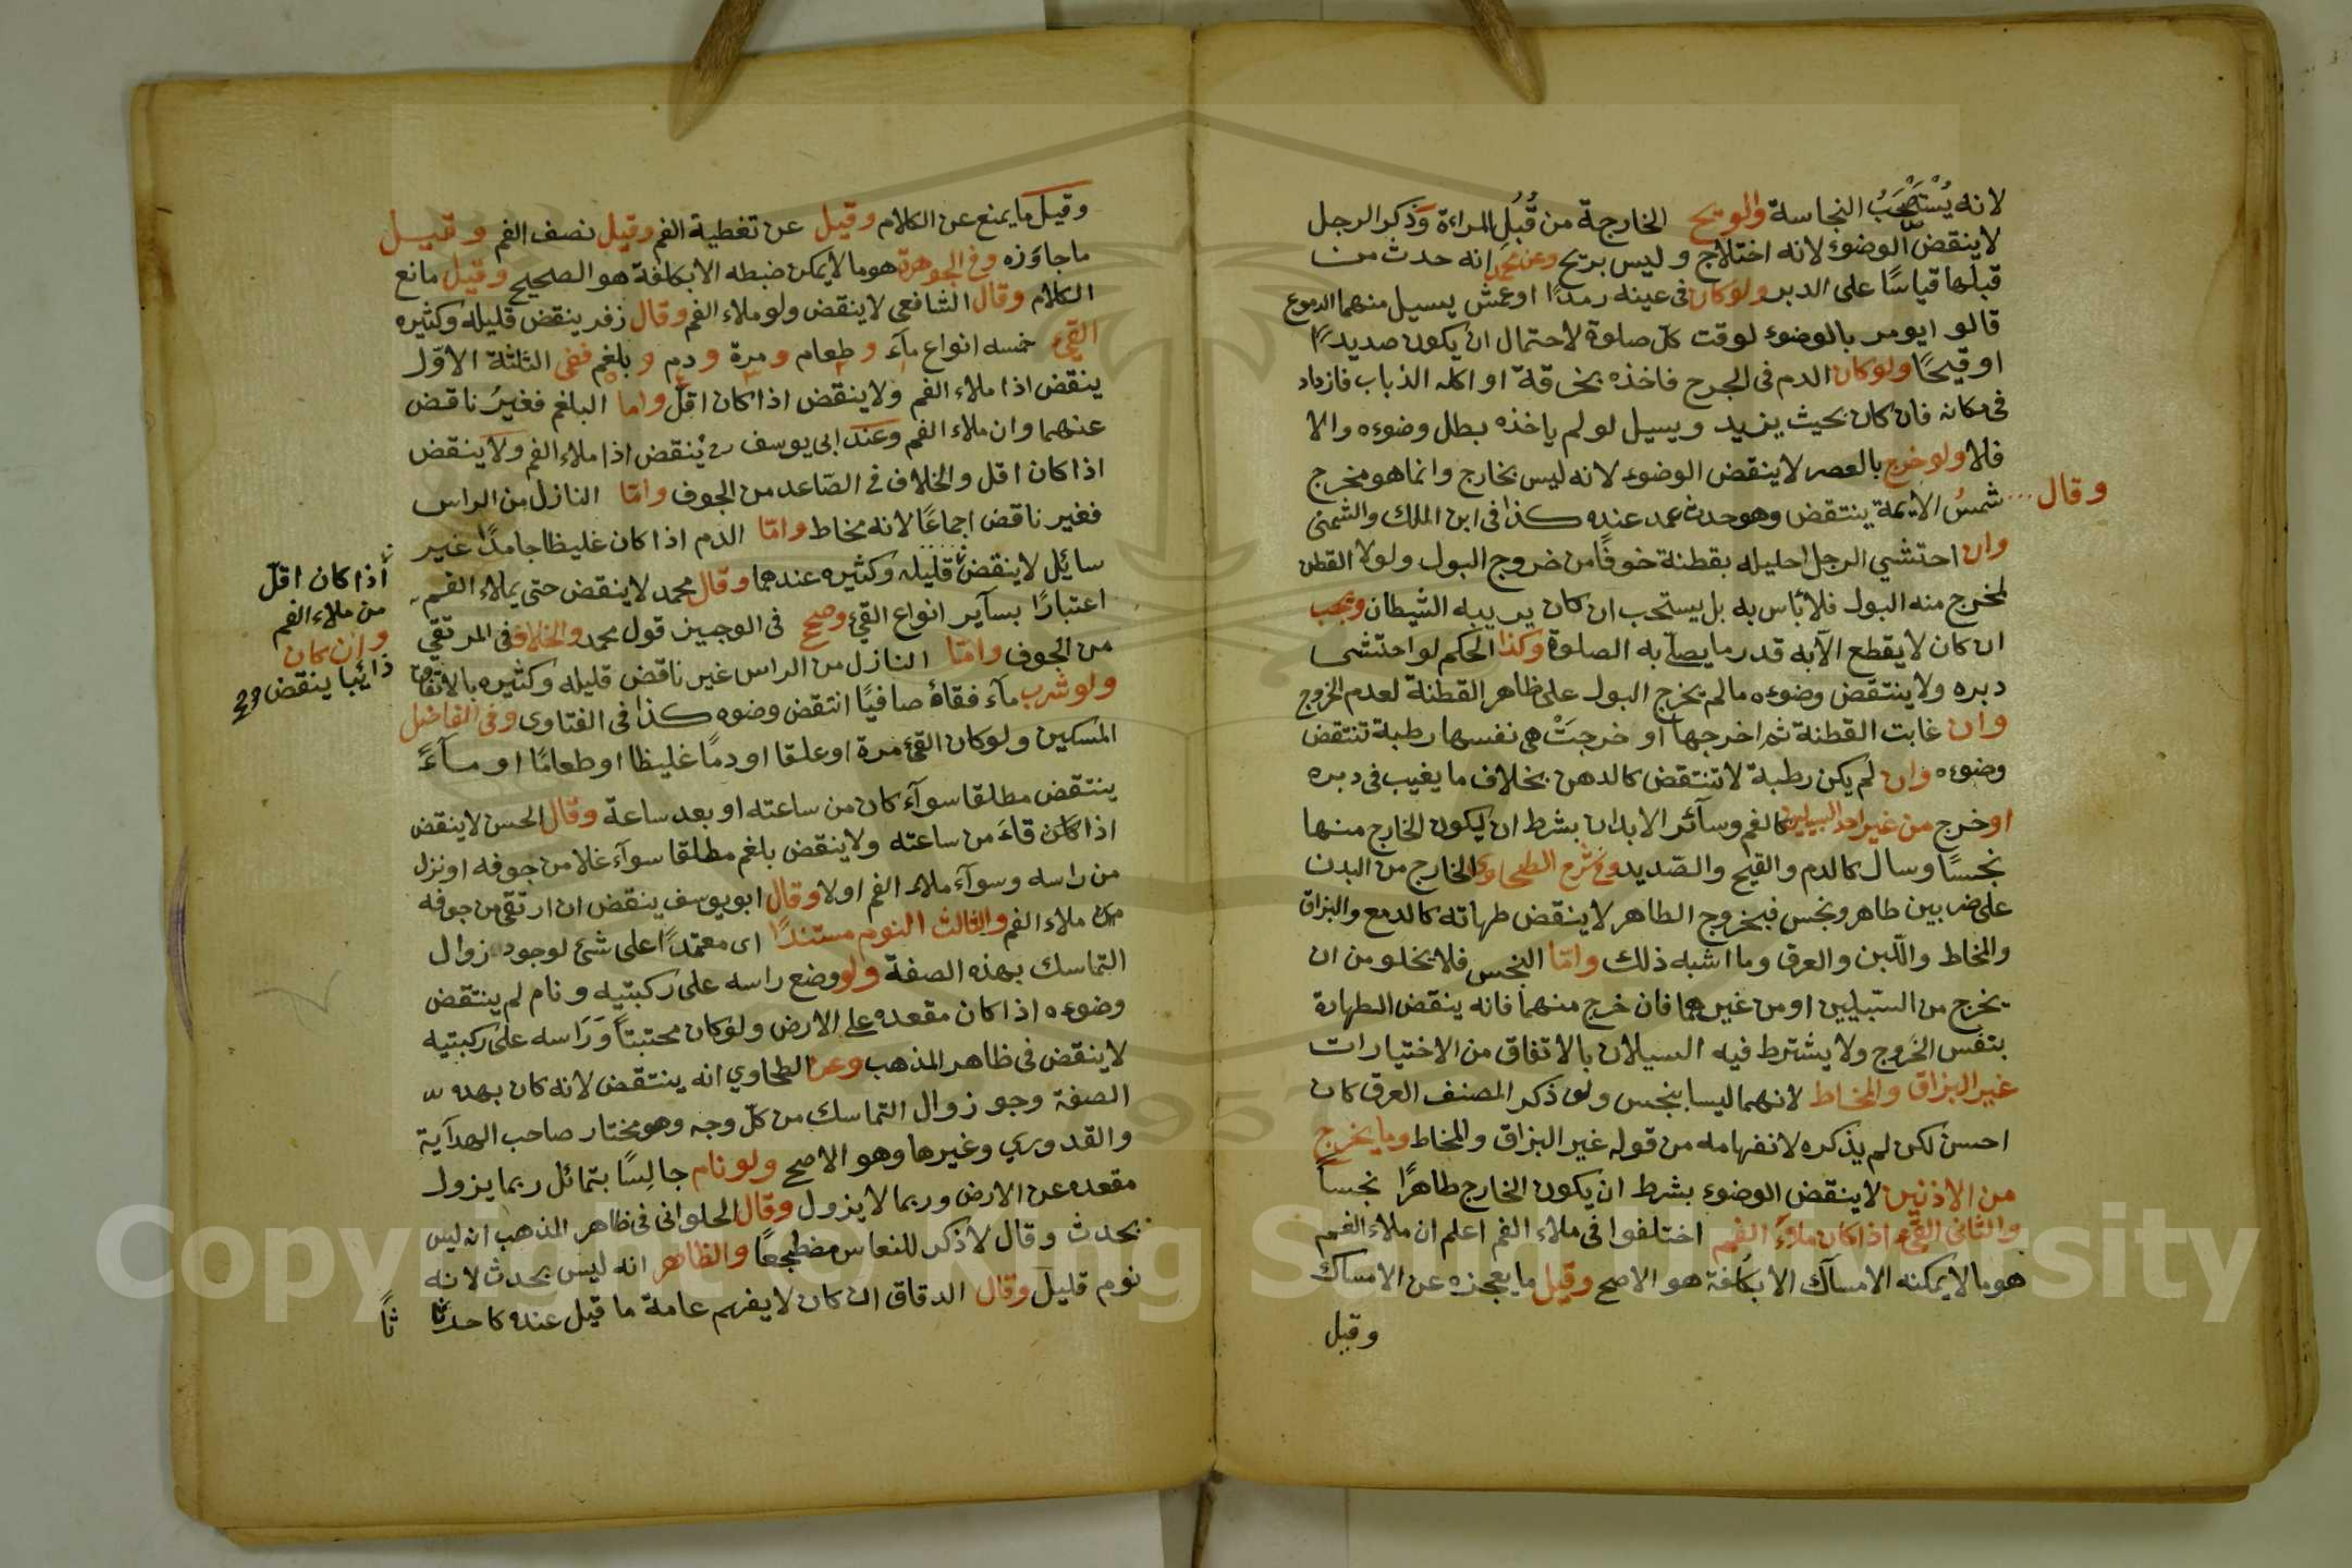 لانه يُسْتَصْحَبُ النجاسة والريح الخارجة من قُبُلِ المراءة وَذكر الرجل
لاينقض الوضوء لانه اختلاج وليس بريح وعن محمد انه حدث من
قبلها قياسًا على الدبر ولو كان فى عينه رمدًا او عمش يسيل منهما الدموع
قالو ايومر بالوضوء لوقت كلّ صلوة لاحتمال ان يكون صديدًا
او قيحًا ولو كان الدم فى الجرح فاخذه بخرقة او اكله الذباب فازداد
فى مكانه فان كان بحيث يزيد ويسيل لو لم ياخذه بطل وضوءه والا
فلا ولو خرج بالعصر لاينقض الوضوء لانه ليس بخارج وانما هو مخرج
وقال شمسُ الايمة ينتقض وهو حدث عمد عنده كذا فى ابن الملك والشمنى
وان احتشي الرجل احليله بقطنة خوفًا من خروج البول ولولا القطن
لخرج منه البول فلا بأس به بل يستحب ان كان يريبه الشيطان ويجب
ان كان لا يقطع الآ به قدر ما يصلّى به الصلوة وكذا الحكم لو احتشى
دبره ولا ينتقض وضوءه مالم يخرج البول على ظاهر القطنة لعدم الخروج
وان غابت القطنة ثم اخرجها او خرجَتْ هى نفسها رطبة تنتقض
وضوءه وان لم يكن رطبة لا تنتقض كالدهن بخلاف ما يغيب فى دبره
او خرج من غير احد السبيلين كالفم وسآئر الابدان بشرط ان يكون الخارج منها
نجسًا وسال كالدم والقيح والصّديد وفى شرح الطحاوى الخارج من البدن
على ضربين طاهر ونجس فبخروج الطاهر لاينقض طهاته كالدمع والبزاق
والمخاط واللّبن والعرق وما اشبه ذلك وامّا النجس فلا يخلو من ان
يخرج من السّبيلين او من غيرهما فان خرج منهما فانه ينقض الطهارة
بنفس الخروج ولا يشترط فيه السيلان بالاتفاق من الاختيارات
غير البزاق والمخاط لانهما ليسا بنجس ولو ذكر المصنف العرق كان
احسن لكن لم يذكره لانفهامه من قوله غير البزاق والمخاط وما يخرج
من الاذنين لاينقض الوضوء بشرط ان يكون الخارج طاهرًا نجساً
والثانى القئ اذا كان ملآء الفم اختلفوا فى ملاء الفم اعلم ان ملاء الفم
هو مالا يمكنه الامسآك الا بكلفة هو الاصح وقيل ما يعجزه عن الامساك
وقيل
وقيل ما يمنع عن الكلام وقيل عن تغطية الفم وقيل نصف الفم وقيل
ما جاوَزه وفى الجوهرة هو مالا يمكن ضبطه الا بكلفة هو الصحيح وقيل مانع
الكلام وقال الشافعي لاينقض ولو ملاء الفم وقال زفر ينقض قليله وكثيره
القئ خمسه انواع مآء و طعام و مرة و دم و بلغم ففى الثلثة الاوّل
ينقض اذا ملاء الفم ولا ينقض اذا كان اقلّ واما البلغم فغيرُ ناقض
عنهما وان ملاء الفم وعند ابى يوسف ينقض اذا ملاء الفم ولا ينقض
اذا كان اقل والخلاف فى الصّاعد من الجوف وامّا النازل من الراس
فغير ناقض اجماعًا لانه مخاط وامّا الدم اذا كان غليظا جامدًا غير
سايل لاينقض قليله وكثيره عندهما وقال محمد لاينقض حتى يملاء الفم
اذا كان اقلّ
من ملاء الفم
وان كان
ذائبا ينقض صح
اعتبارًا بسآير انواع القئ وصحّح فى الوجيز قول محمد والخلاف فى المرتقي
من الجوف وامّا النازل من الراس غير ناقض قليله وكثيره بالاتفاق
ولو شرب مآء فقاءَ صافيًا انتقض وضوه كذا فى الفتاوى وفى الفاضل
المسكين ولو كان القئ مرة او علقا او دمًا غليظا او طعامًا او مآءً
ينتقض مطلقا سوآء كان من ساعته او بعد ساعة وقال الحسن لاينقض
اذا كان قاءَ من ساعته ولا ينقض بلغم مطلقا سوآء غلا من جوفه او نزل
من راسه وسوآء ملاء الفم اولا وقال ابو يوسف ينقض ان ارتقى من جوفه
من ملاء الفم والثالث النوم مستندًا اى معتمدًا على شئ لوجود زوال
التماسك بهذه الصفة ولو وضع راسه على ركبتيه ونام لم ينتقض
وضوءه اذا كان مقعده على الارض ولو كان محتبتاً وَرَاسه على ركبتيه
لاينقض فى ظاهر المذهب وعن الطحاوي انه ينتقض لانه كان بهده
الصفة وجو زوال التماسك من كلّ وجه وهو مختار صاحب الهدآية
والقدوري وغيرها وهو الاصح ولو نام جالِسًا بتمائل ربما يزول
مقعده عن الارض وربما لا يزول وقال الحلوانى فى ظاهر المذهب انه ليس
بحدث وقال لا ذكر للنعاس مضطجعًا والظاهر انه ليس بحدث لانه
نوم قليل وقال الدقاق ان كان لا يفهم عامة ما قيل عنده كا حدثا
ثاً